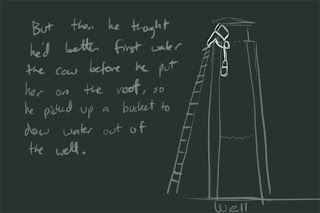 But then he thought
he'd better first water
the cow before he put
her on the roof, so
he picked up a bucket to
draw water out of
the well.
Well